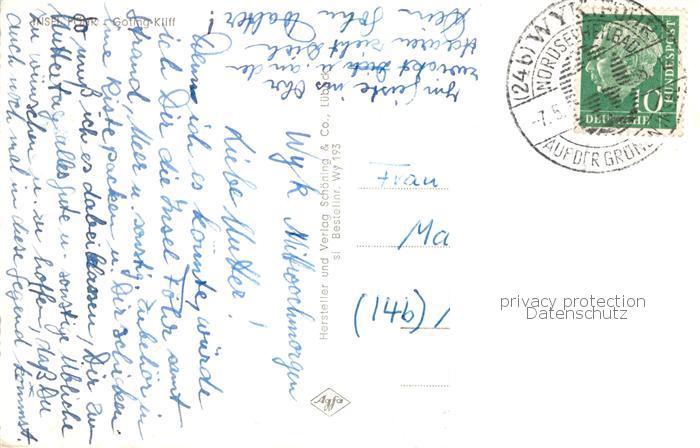 INSEL FÖHR - Goting-Kliff
Wyk Mittwochmorgen
Liebe Mutter!
Wenn ich es könnte, würde
ich Dir die Insel Föhr samt
Strand, Meer u. sonstig. Zubehör in
eine Kiste packen u. Dir schicken.
So muß ich es dabei lassen, Dir zum
Muttertag alles Gute u. sonstige Übliche
zu wünschen u. zu hoffen, daß Du
auch noch mal in diese Gegend kommst.
Im Geiste ins Ohr
zwickt Dich u. an den
Haaren zieht Dich
Dein Sohn Walter!
Hersteller und Verlag Schöning & Co., Lübeck
Bestellnr. Wy 193
Agfa
Frau
Ma
(14a)
(24b) WYK
NORDSEEHEILBAD
-7.5.
AUF DER GRÜNEN
10
DEUTSCHE
BUNDESPOST
privacy protection
Datenschutz